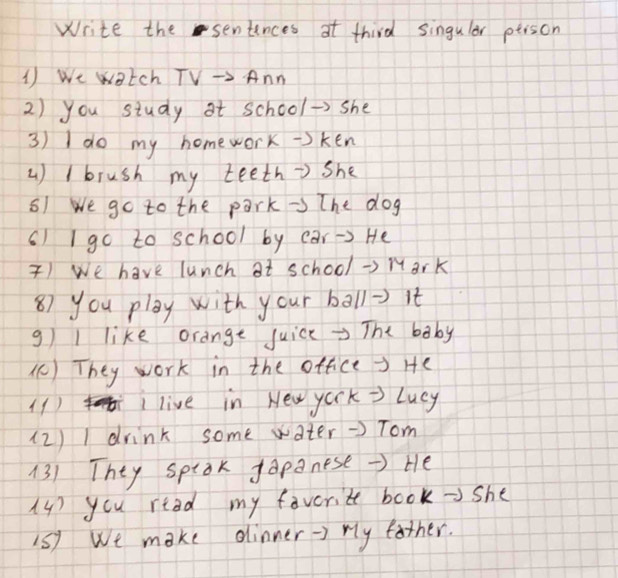 Write the sentences at third singular person
1) We watch TV → Ann
2) you study at school → she
3) I do my homework → Ken
4) I brush my teeth → She
5) We go to the park → The dog
6) I go to school by car → He
7) We have lunch at school → Mark
8) you play with your ball → it
9) I like orange juice → The baby
10) They work in the office → He
11) i live in New york → Lucy
12) I drink some water → Tom
13) They speak Japanese → He
14) you read my favorite book → She
15) We make dinner → My father.